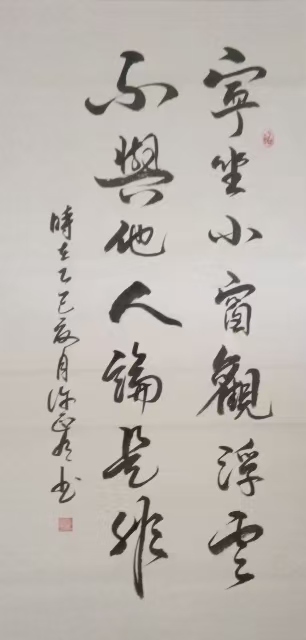 寧坐小窗觀浮雲
不與他人論是非
時在乙巳夏月許
書